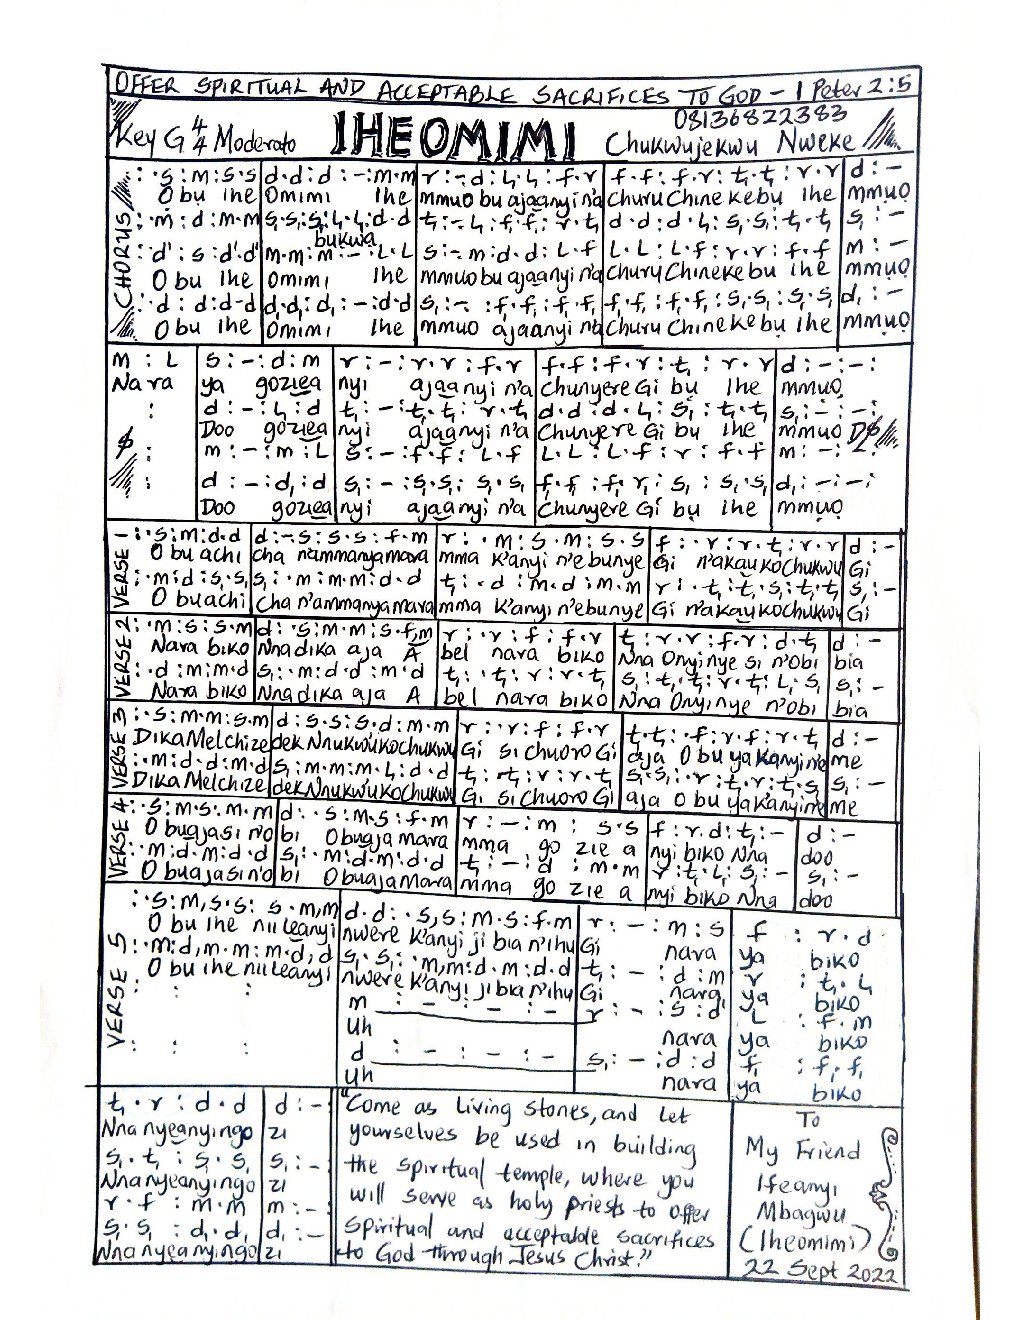 OFFER SPIRITUAL AND ACCEPTABLE SACRIFICES TO GOD - 1 Peter 2:5
08136822383
Key G 4/4 Moderato IHEOMIMI Chukwujekwu Nweke
CHORUS
: ·s : m : s·s | d·d : d : - : m·m | r : - d : l,· l, : f·r | f·f : f·r : t,· t, : r·r | d : -
O bu ihe Omimi Ihe mmuo bu ajaanyi n'a churu Chineke bu ihe mmuọ
: ·m : d : m·m | s,·s, : s, : l,·l, : d·d | t, : - l, : f,·f, : r·t, | d·d : d·l, : s,·s, : t,·t, | s, : -
bukwa
: ·d' : s : d'·d' | m·m : m : - : l·l | s : - m : d·d : l·f | l·l : l·f : r·r : f·f | m : -
O bu ihe Omimi Ihe mmuo bu ajaanyi n'a churu Chineke bu ihe mmuọ
: ·d : d : d·d | d,·d, : d, : - : d·d | s, : - : f,·f, : f,·f, | f,·f, : f,·f, : s,·s, : s,·s, | d, : -
O bu ihe Omimi Ihe mmuo ajaanyi n'a churu Chineke bu ihe mmuọ
m : l | s : - : d : m | r : - : r·r : f·r | f·f : f·r : t, : r·r | d : - : - :
Na ra ya goziea nyi ajaanyi n'a chunyere Gi bụ Ihe mmuọ
: | d : - : l, : d | t, : - : t,·t, : r·t, | d·d : d·l, : s, : t,·t, | s, : - : - :
Doo goziea nyi ajaanyi n'a Chunyere Gi bụ Ihe mmuo D$
$ : | m : - : m : l | s : - : f·f : l·f | l·l : l·f : r : f·f | m : - : - :
: | d : - : d, : d | s, : - : s,·s, : s,·s, | f,·f, : f,·r, : s, : s,·s, | d, : - : - :
Doo goziea nyi ajaanyi n'a chunyere Gi bụ Ihe mmuọ
VERSE
- : ·s : m : d·d | d : - s : s·s : f·m | r : ·m : s·m : s·s | f : ·r : r·t, : r·r | d : -
O bu achi cha n'ammanyamara mma k'anyi n'ebunye Gi n'akaukochukwu Gi
: ·m : d : s,·s, | s, : ·m : m·m : d·d | t, : ·d : m·d : m·m | r : ·t, : t,·s, : t,·t, | s, : -
O bu achi cha n'ammanyamara mma k'anyi n'ebunye Gi n'akaukochukwu Gi
VERSE 2
: ·m : s : s·m | d : ·s : m·m : s·f,m | r : ·r : f : f·r | t, : r·r : f·r : d·t, | d : -
Nara biko Nna dika aja A bel nara biko Nna Onyinye si n'obi bia
: ·d : m : m·d | s, : ·m : d·d : m·d | t, : ·t, : r : r·t, | s, : t,·t, : r·t, : l,·s, | s, : -
Nara biko Nna dika aja A bel nara biko Nna Onyinye n'obi bia
VERSE 3
: ·s : m·m : s·m | d : s·s : s·d : m·m | r : ·r : f : f·r | t,·t, : ·r : f·r : r·t, | d : -
Dika Melchize dek Nnukwukochukwu Gi si chuoro Gi aja O bu ya kanyin'e me
: ·m : d·d : m·d | s, : m·m : m·l, : d·d | t, : ·t, : r : r·t, | s,·s, : ·r : t,·r : t,·s, | s, : -
Dika Melchize dek Nnukwukochukwu Gi si chuoro Gi aja O bu ya kanyin'e me
VERSE 4
: ·s : m·s : m·m | d : ·s : m·s : f·m | r : - : m : s·s | f : r·d : t, : - | d : -
O buajasi n'o bi O buaja mara mma go zie a nyi biko Nna doo
: ·m : d·m : d·d | s, : ·m : d·m : d·d | t, : - : d : m·m | r : t,·l, : s, : - | s, : -
O buajasi n'o bi O buaja mara mma go zie a nyi biko Nna doo
VERSE 5
: ·s : m,s·s : s·m,m | d·d : ·s,s : m·s : f·m | r : - : m : s | f : r·d
O bu ihe niileanyi nwere k'anyi ji bia n'ihu Gi nara ya biko
: ·m : d,m·m : m·d,d | s,·s, : ·m,m : d·m : d·d | t, : - : d : m | r : t,·l,
O bu ihe niileanyi nwere k'anyi ji bia n'ihu Gi nara ya biko
: : | m : - : - : - | r : - : s : d' | l : f·m
Uh nara ya biko
: : | d : - : - : - | s, : - : d : d | f, : f,·f,
Uh nara ya biko
t,·r : d·d | d : -
Nna nyeanyingo zi
s,·t, : s,·s, | s, : -
Nna nyeanyingo zi
r·f : m·m | m : -
s,·s, : d,·d, | d, : -
Nna nyeanyingo zi
"Come as living stones, and let
yourselves be used in building
the spiritual temple, where you
will serve as holy priests to offer
spiritual and acceptable sacrifices
to God through Jesus Christ."
To
My Friend
Ifeanyi
Mbagwu
(Iheomimi)
22 Sept 2022